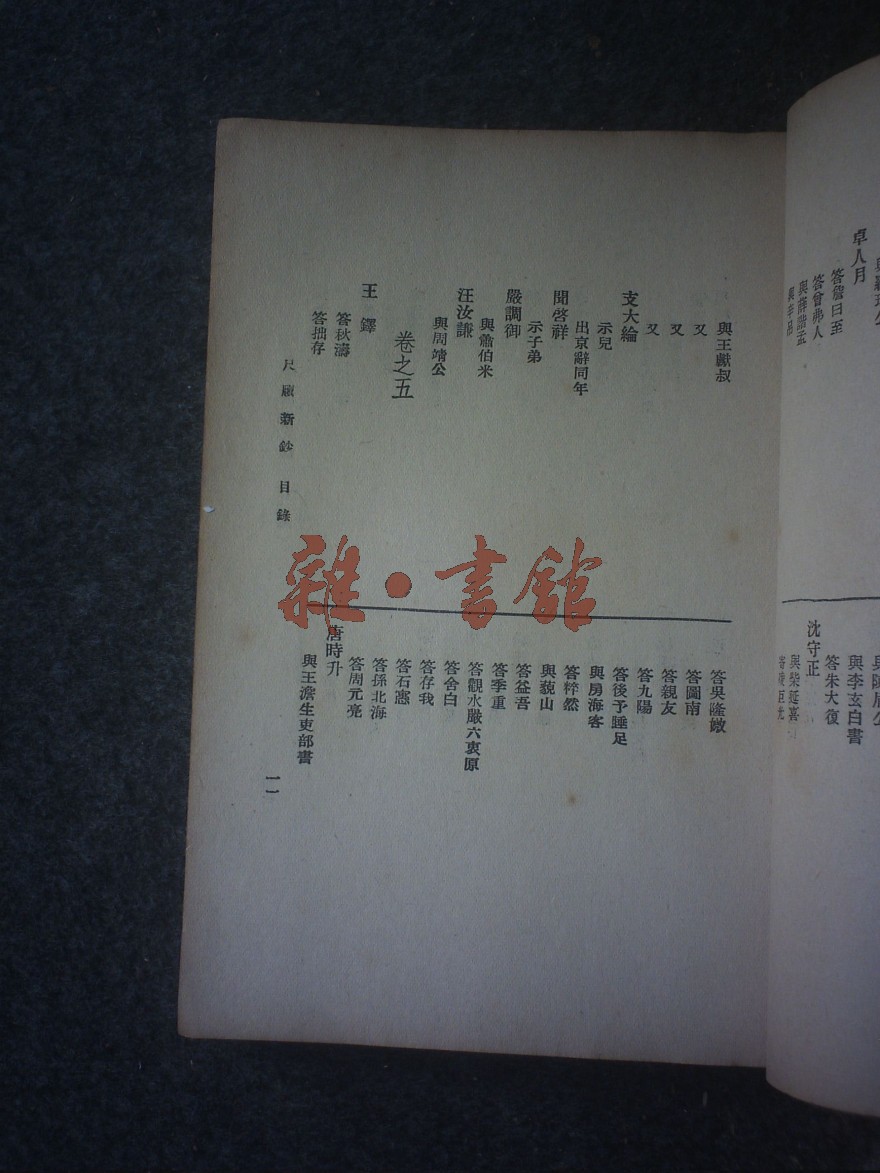 卓人月
答詹曰至
答曾弗人
沈守正
與李玄白書
答朱大復
與柴延喜
與王獻叔
又
又
又
支大綸
示兒
出京辭同年
聞啓祥
示子弟
嚴調御
與鄒伯米
汪汝謙
與周靖公
卷之五
王鐸
答秋濤
答拙存
答吳隆媺
答圖南
答親友
答九陽
答後予踵足
與房海客
答粹然
與藐山
答益吾
答季重
答觀水嚴六衷原
答舍白
答存我
答石憲
答孫北海
答周元亮
唐時升
與王澹生吏部書
尺牘新鈔 目錄
一一
雜·書館